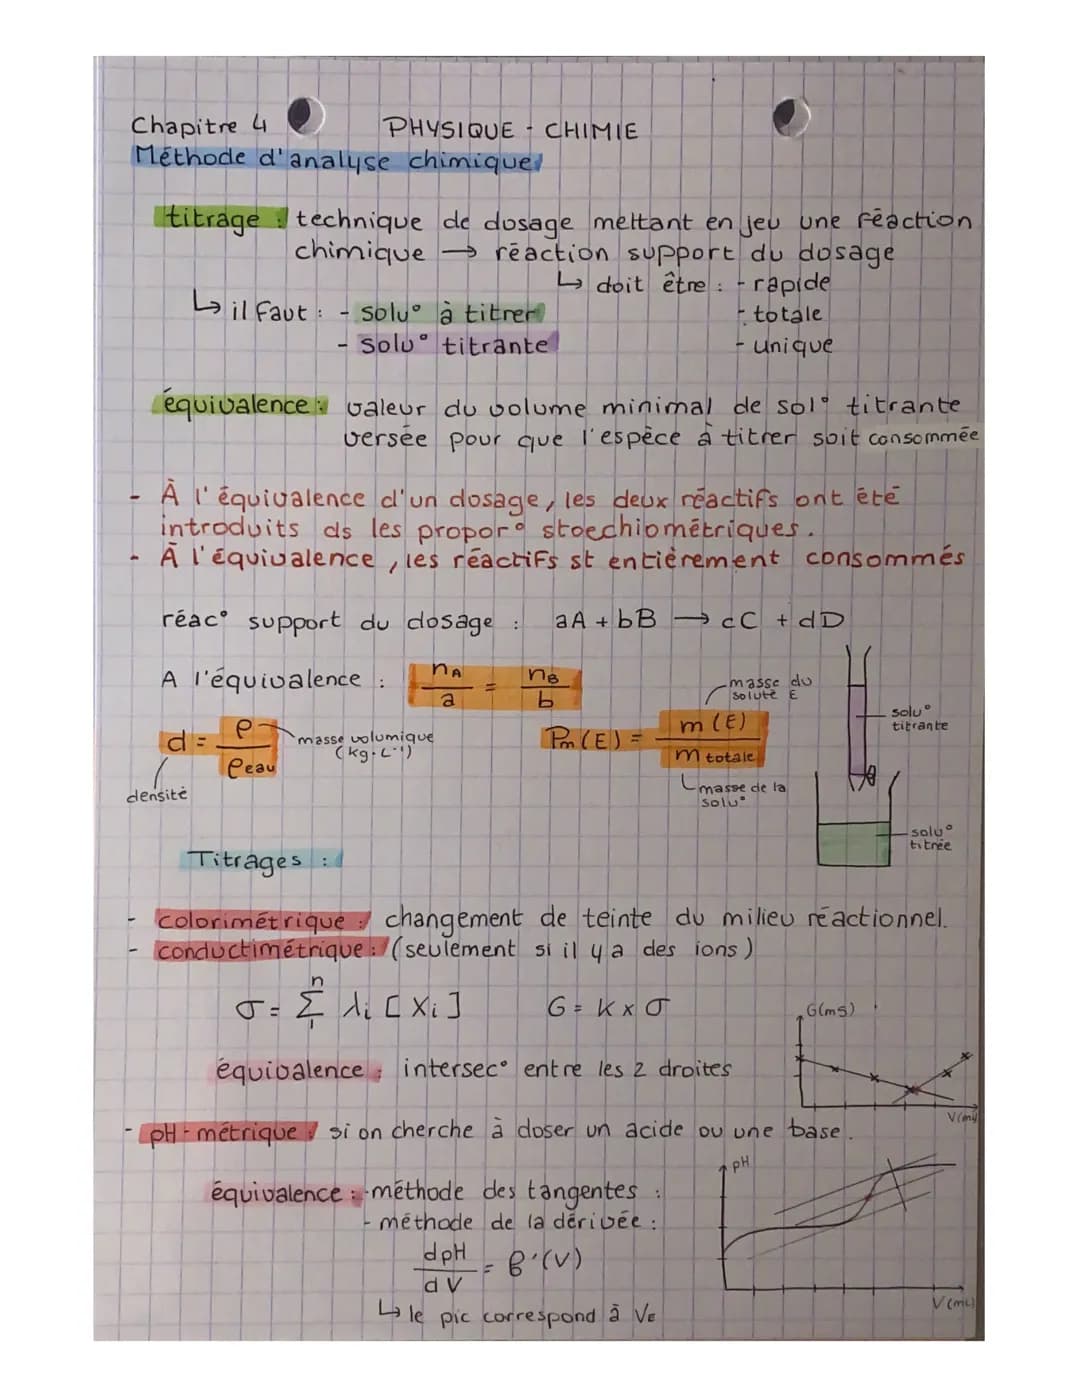 Chapitre 4
PHYSIQUE - CHIMIE
Méthode d'analyse chimique
titrage : technique de dosage mettant en jeu une réaction
chimique → réaction support du dosage
↳ doit être : - rapide
- totale
- unique
↳ il faut : - solu° à titrer
- solu° titrante
équivalence : valeur du volume minimal de sol° titrante
versée pour que l'espèce à titrer soit consommée
- À l'équivalence d'un dosage, les deux réactifs ont été
introduits ds les propor° stoechiométriques.
- À l'équivalence, les réactifs st entièrement consommés
réac° support du dosage : aA + bB → cC + dD
A l'équivalence : nA/a = nB/b
d = ρ/ρeau
masse volumique
(kg.L⁻¹)
densité
Pm(E) = m(E)/m totale
masse du
soluté E
masse de la
solu°
solu°
titrante
solu°
titrée
Titrages :
- colorimétrique : changement de teinte du milieu réactionnel.
- conductimétrique : (seulement si il y a des ions)
σ = Σ λi [Xi]
n
1
G = K x σ
G(mS)
V(mL)
équivalence : intersec° entre les 2 droites
- pH-métrique : si on cherche à doser un acide ou une base.
équivalence : - méthode des tangentes :
- méthode de la dérivée :
dpH/dV = β'(V)
↳ le pic correspond à VE
pH
V(mL)